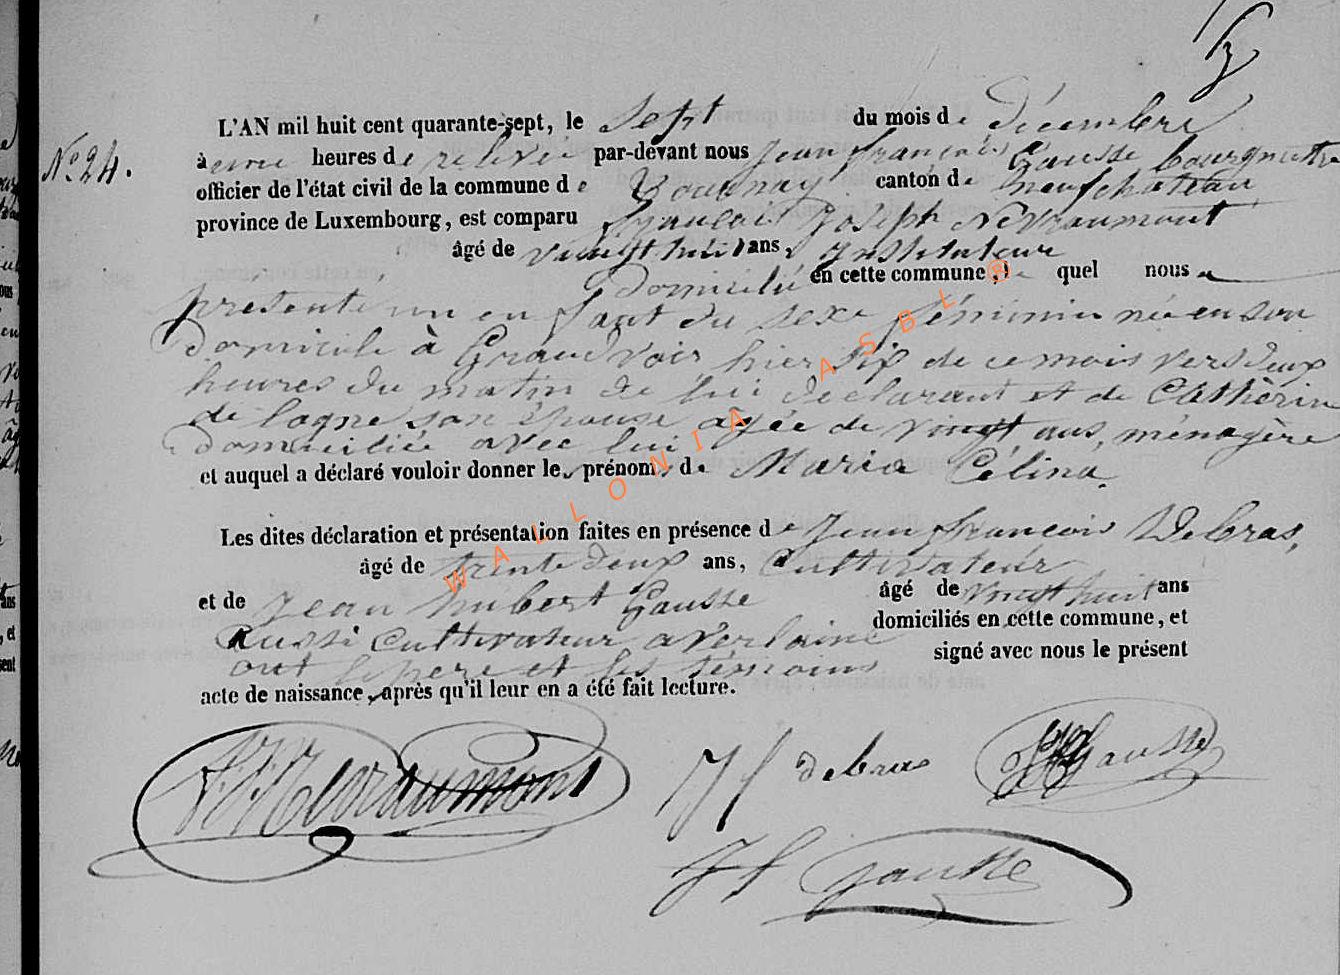 N.° 24.
L'AN mil huit cent quarante-sept, le Sept du mois de décembre
à une heures de relevée par-devant nous Jean françois Gausse bourgmestre
officier de l'état civil de la commune de canton de neufchateau
province de Luxembourg, est comparu François Joseph Nevraumont
âgé de vingt huit ans, instituteur
domicilié en cette commune, le quel nous a
presenté un enfant du sexe féminin née en son
domicile à Grandvoir hier six de ce mois vers deux
heures du matin de lui déclarant et de Cathérine
de logne son épouse agée de vingt ans, ménagère
domiciliée avec lui
et auquel a déclaré vouloir donner les prénoms de Maria Célina.
Les dites déclaration et présentation faites en présence de Jean françois Debras,
âgé de trente deux ans, Cultivateur
et de Jean hubert Gausse âgé de vingt huit ans
aussi Cultivateur a Verlaine domiciliés en cette commune, et
ont le pere et les témoins signé avec nous le présent
acte de naissance, après qu'il leur en a été fait lecture.
Nevraumont
J f debras
Gausse
J f Gausse
WALLONIA ASBL ®